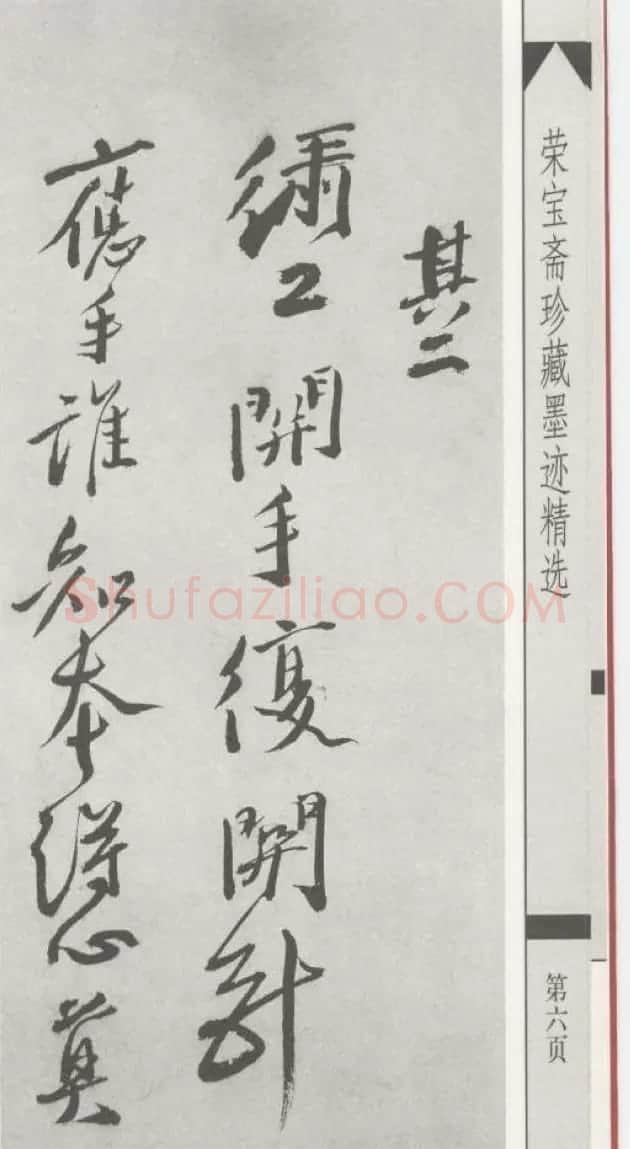 荣宝斋珍藏墨迹精选
第六页
其二
工開手復開
應手誰知本得心莫
Shufaziliao.COM